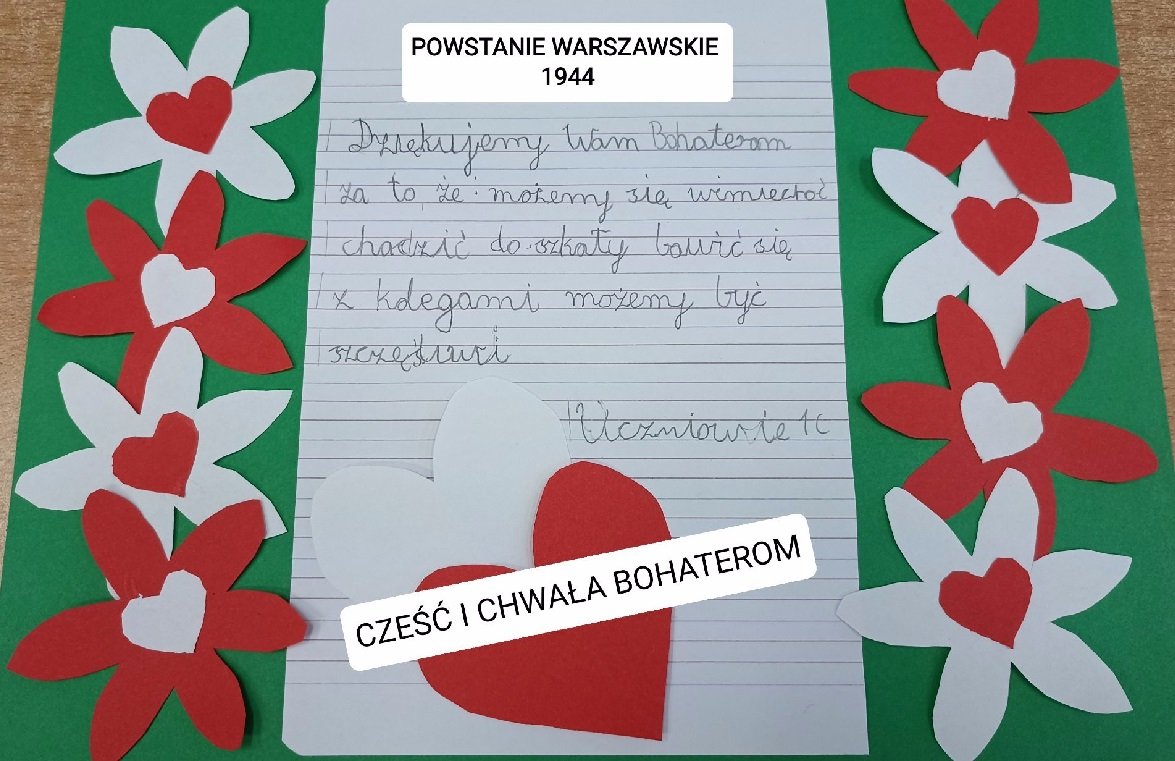 POWSTANIE WARSZAWSKIE
1944
Dziękujemy Wam Bohaterom
za to że możemy się uśmiechać
chodzić do szkoły bawić się
z kolegami możemy być
szczęśliwi
Uczniowie 1c
CZEŚĆ I CHWAŁA BOHATEROM